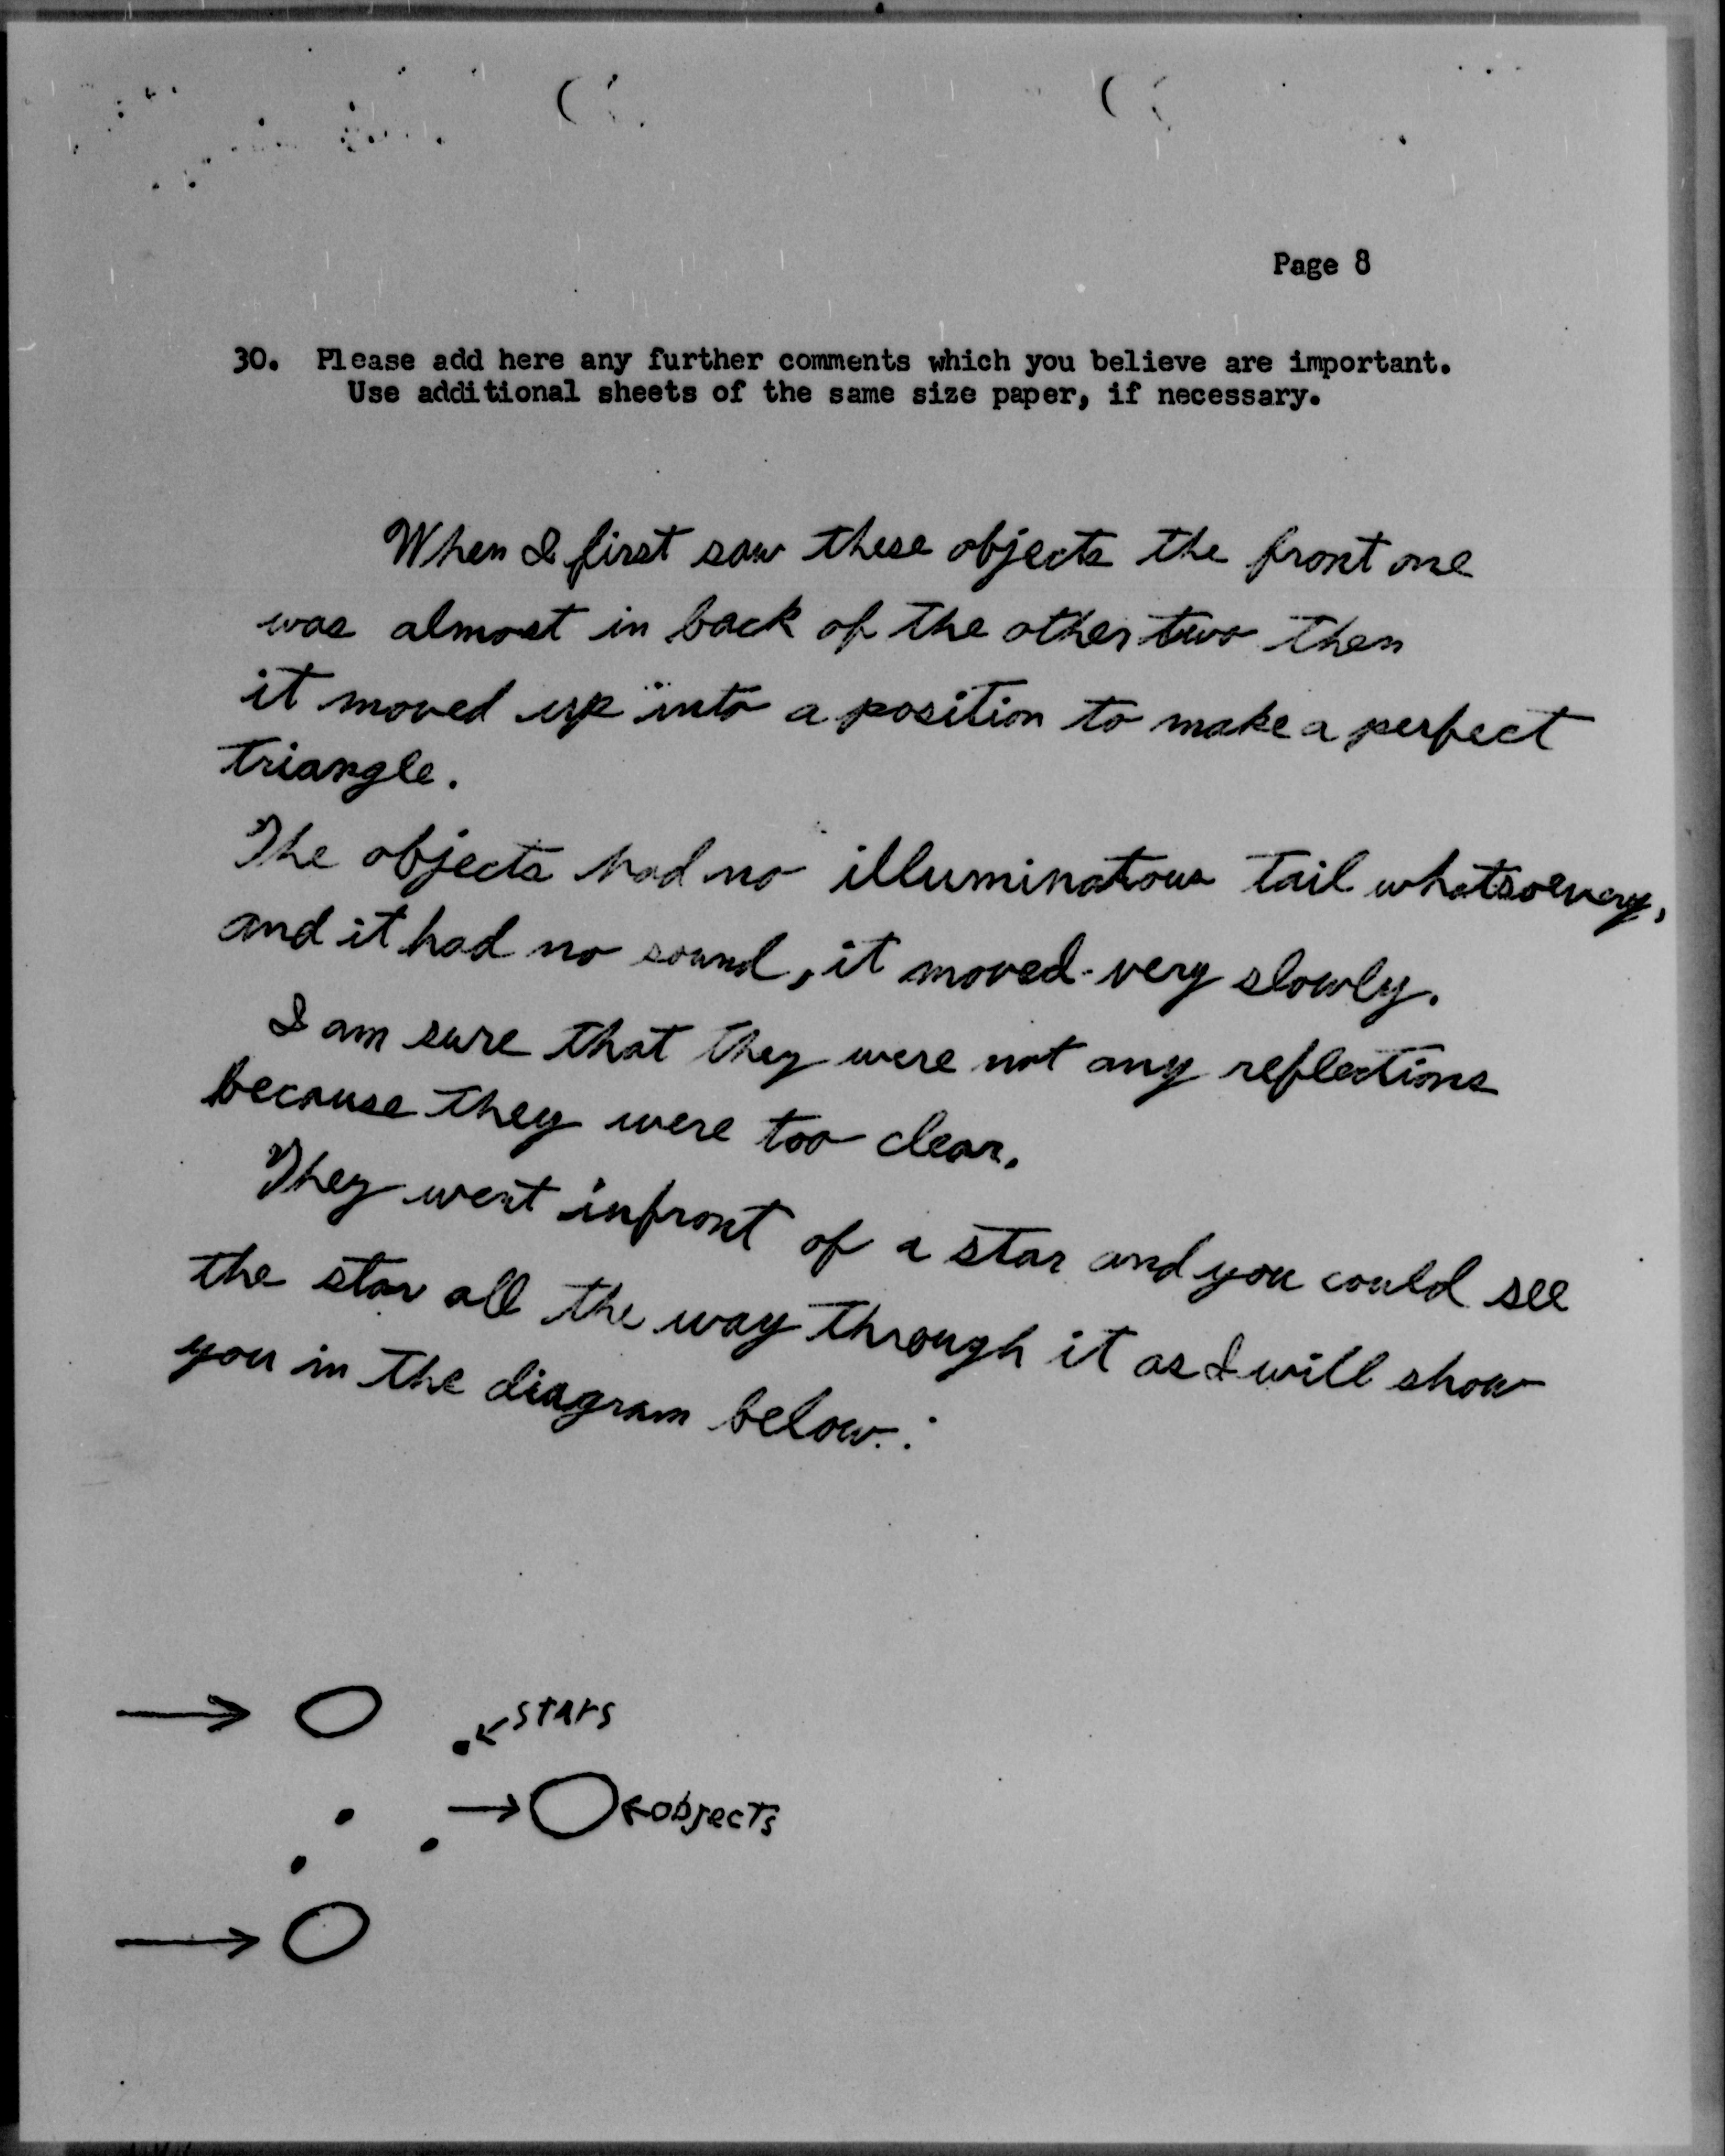 Page 8
30. Please add here any further comments which you believe are important.
Use additional sheets of the same size paper, if necessary.
When I first saw these objects the front one
was almost in back of the other two then
it moved up into a position to make a perfect
triangle.
The objects had no illuminatous tail whatsoevery,
and it had no sound, it moved very slowly.
I am sure that they were not any reflections
because they were too clear.
They went infront of a star and you could see
the star all the way through it as I will show
you in the diagram below.:
stars
objects